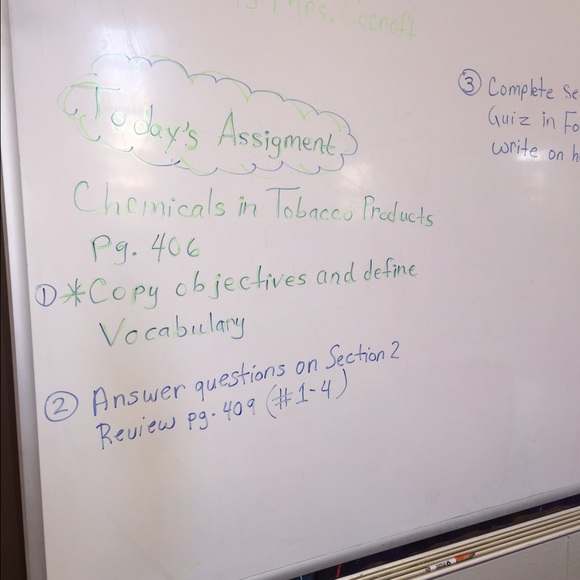 Mrs. Cocroft
Today's Assigment
Chemicals in Tobacco Products
Pg. 406
① *Copy objectives and define
Vocabulary
② Answer questions on Section 2
Review pg. 409 (#1-4)
③ Complete Se
Quiz in Fo
write on h